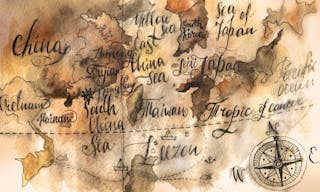 Yellow Sea
South Korea
Sea of Japan
China
East China Sea
Japan
Pacific ocean
Vietnam
Hainan
South China Sea
Taiwan
Tropic of cancer
Luzon
W
E